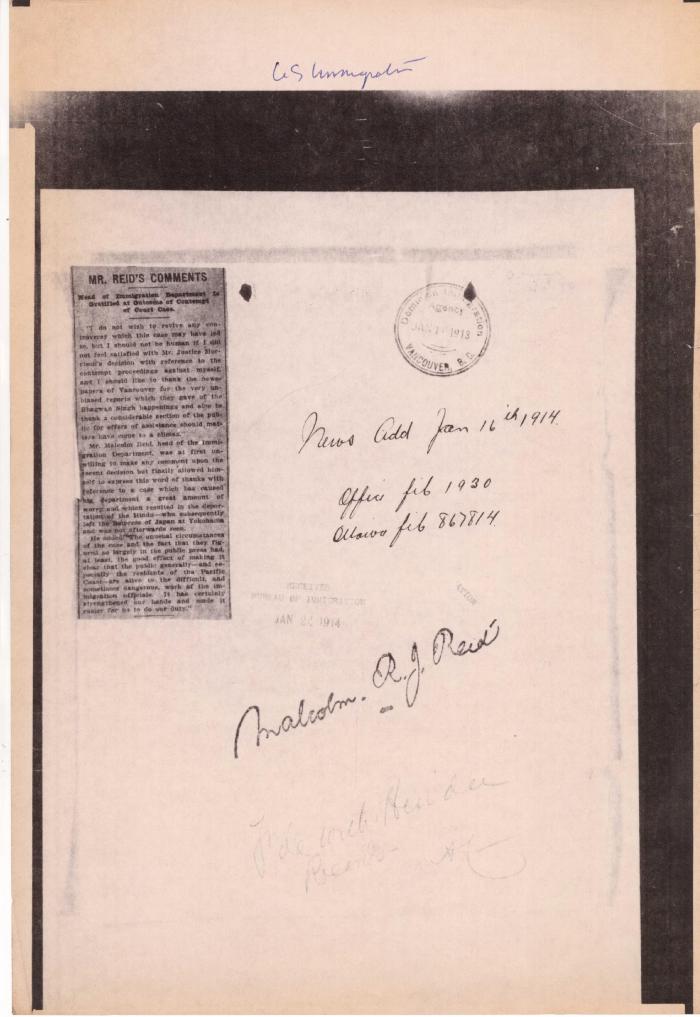 US Immigration
MR. REID'S COMMENTS
Head of Immigration Department Is
Gratified at Outcome of Contempt
of Court Case.
"I do not wish to revive any con-
troversy which this case may have led
to, but I should not be human if I did
not feel satisfied with Mr. Justice Mor-
rison's decision with reference to the
contempt proceedings against myself,
and I should like to thank the news-
papers of Vancouver for the very un-
biased reports which they gave of the
Bhagwan Singh happenings and also to
thank a considerable section of the pub-
lic for offers of assistance should mat-
ters have come to a climax."
Mr. Malcolm Reid, head of the Immi-
gration Department, was at first un-
willing to make any comment upon the
recent decision but finally allowed him-
self to express this word of thanks with
reference to a case which has caused
his department a great amount of
worry and which resulted in the depor-
tation of the Hindu—who subsequently
left the Empress of Japan at Yokohama
and was not afterwards seen.
He added: "The unusual circumstances
of the case and the fact that they fig-
ured so largely in the public press had,
at least, the good effect of making it
clear that the public generally—and es-
pecially the residents of the Pacific
Coast—are alive to the difficult, and
sometimes dangerous, work of the im-
migration officials. It has certainly
strengthened our hands and made it
easier for us to do our duty."
Dominion Immigration
Agency
JAN 1913
VANCOUVER, B. C.
News Add Jan 16th 1914
Office fib 1930
Ottawa fib 867814
RECEIVED
BUREAU OF IMMIGRATION
JAN 22 1914
Malcolm. R. J. Reid